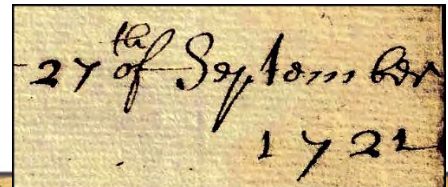 27th of September
1721